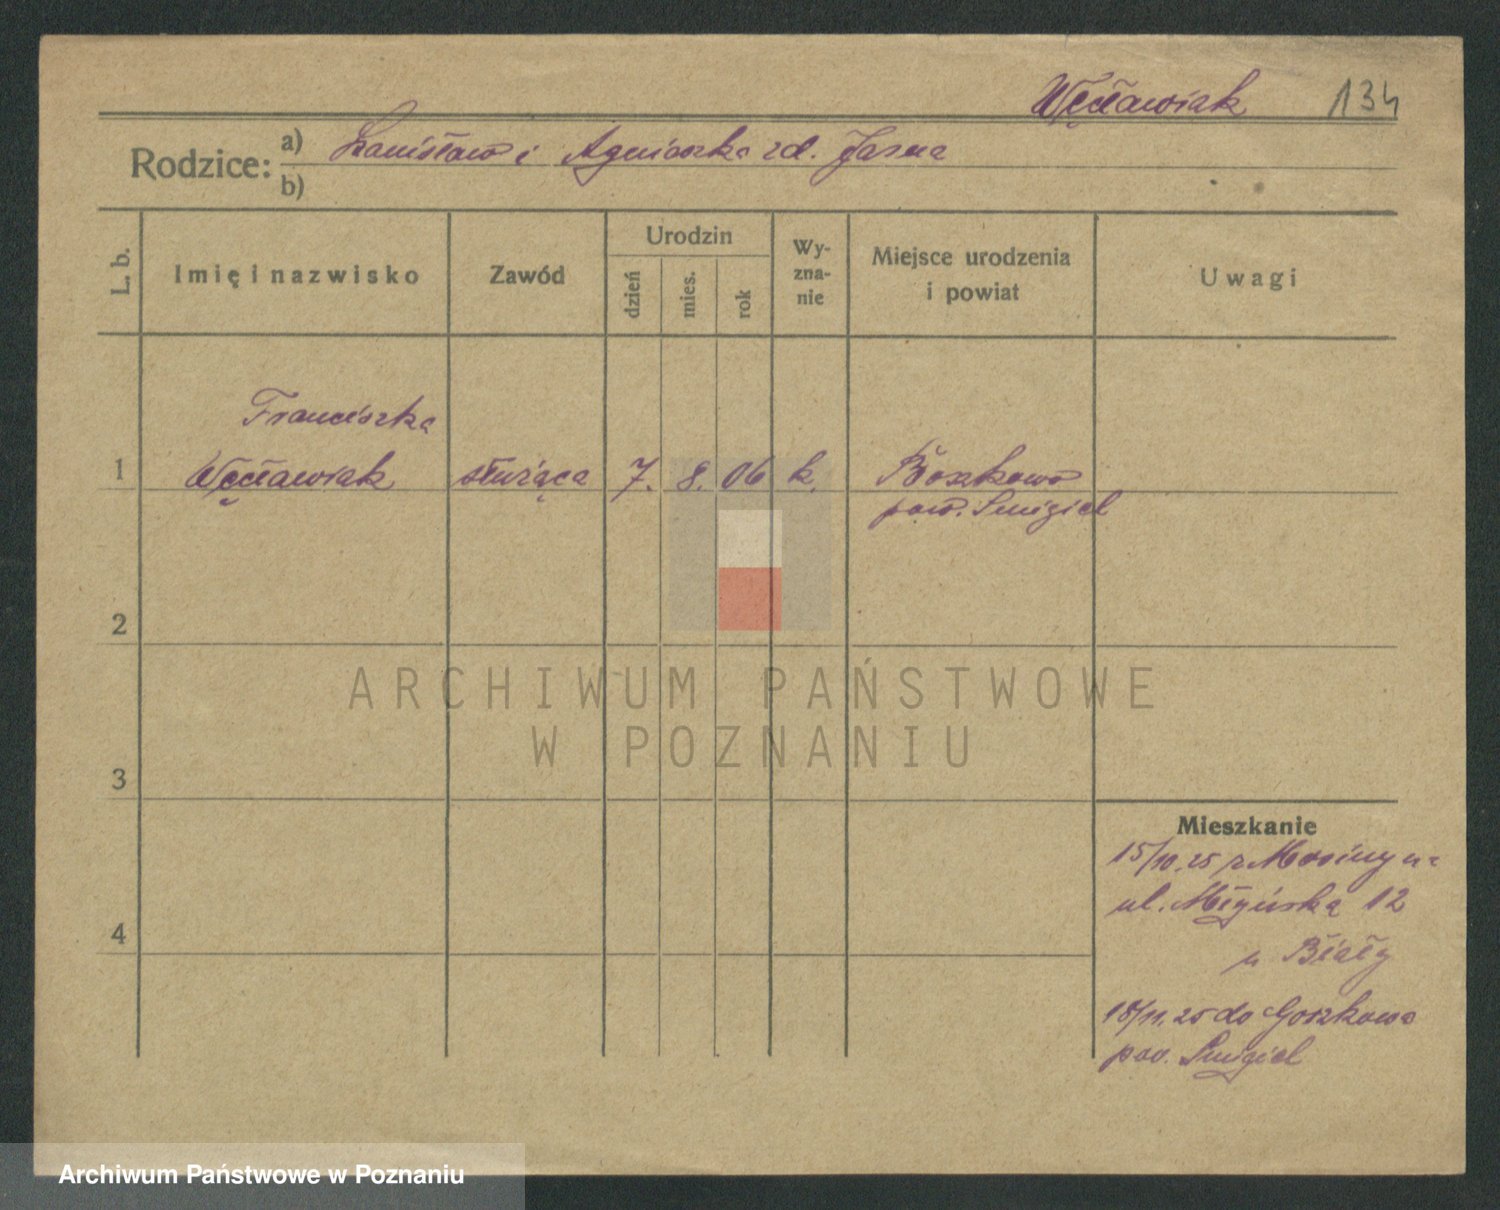 Węcławiak 134
Rodzice: a) Stanisław i Agnieszka zd. Jasna
b)
L. b. Imię i nazwisko Zawód Urodzin dzień mies. rok Wyznanie Miejsce urodzenia i powiat Uwagi
Franciszka
1 Węcławiak służąca 7. 8. 06 k. Boszkowo
pow. Śmigiel
2
ARCHIWUM PAŃSTWOWE
W POZNANIU
3
Mieszkanie
15/10.25 z Mosiny na
ul. Młyńską 12
4
u Biały
18/11.25 do Goszkowo
pow. Śmigiel
Archiwum Państwowe w Poznaniu